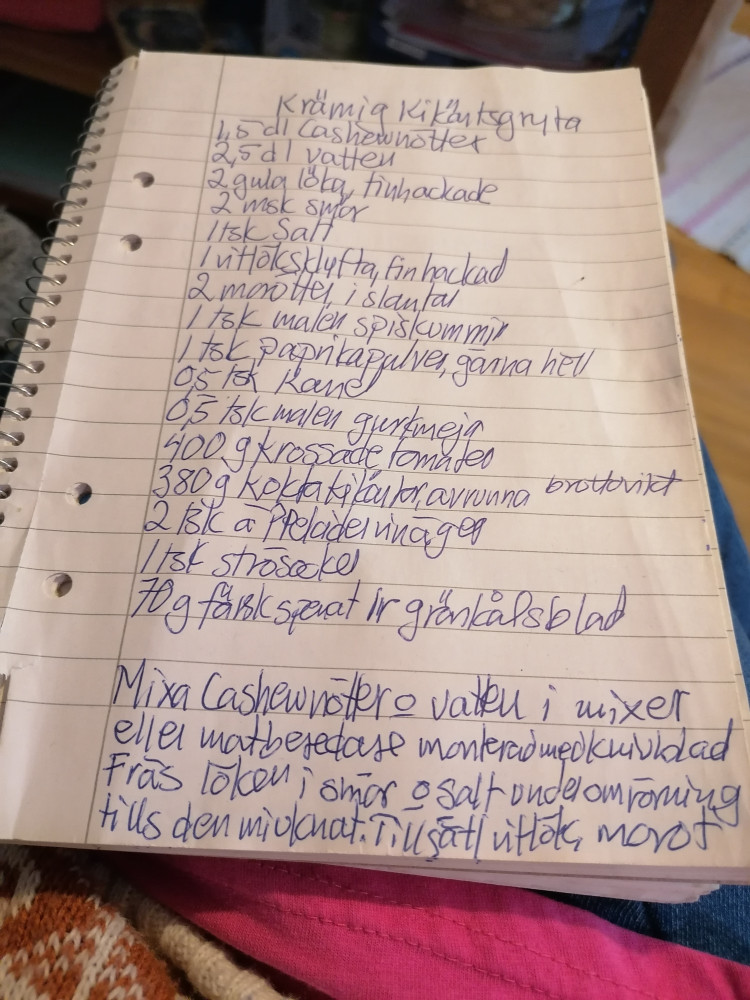 Krämig Kikärtsgryta
1,5 dl Cashewnötter
2,5 dl vatten
2 gula lökar, finhackade
2 msk smör
1 tsk Salt
1 vitlöksklyfta, finhackad
2 morötter, i slantar
1 tsk malen spiskummin
1 tsk paprikapulver, gärna hett
0,5 tsk Kanel
0,5 tsk malen gurkmeja
400 g krossade tomater
380 g kokta kikärtor, avrunna bruttovikt
2 tsk äppelcidervinäger
1 tsk strösocker
70 g färsk spenat lr grönkålsblad
Mixa Cashewnötter o vatten i mixer
eller matberedare monterad med knivblad
Fräs löken i smör o salt under omrörning
tills den mjuknat. Tillsätt vitlök, morot